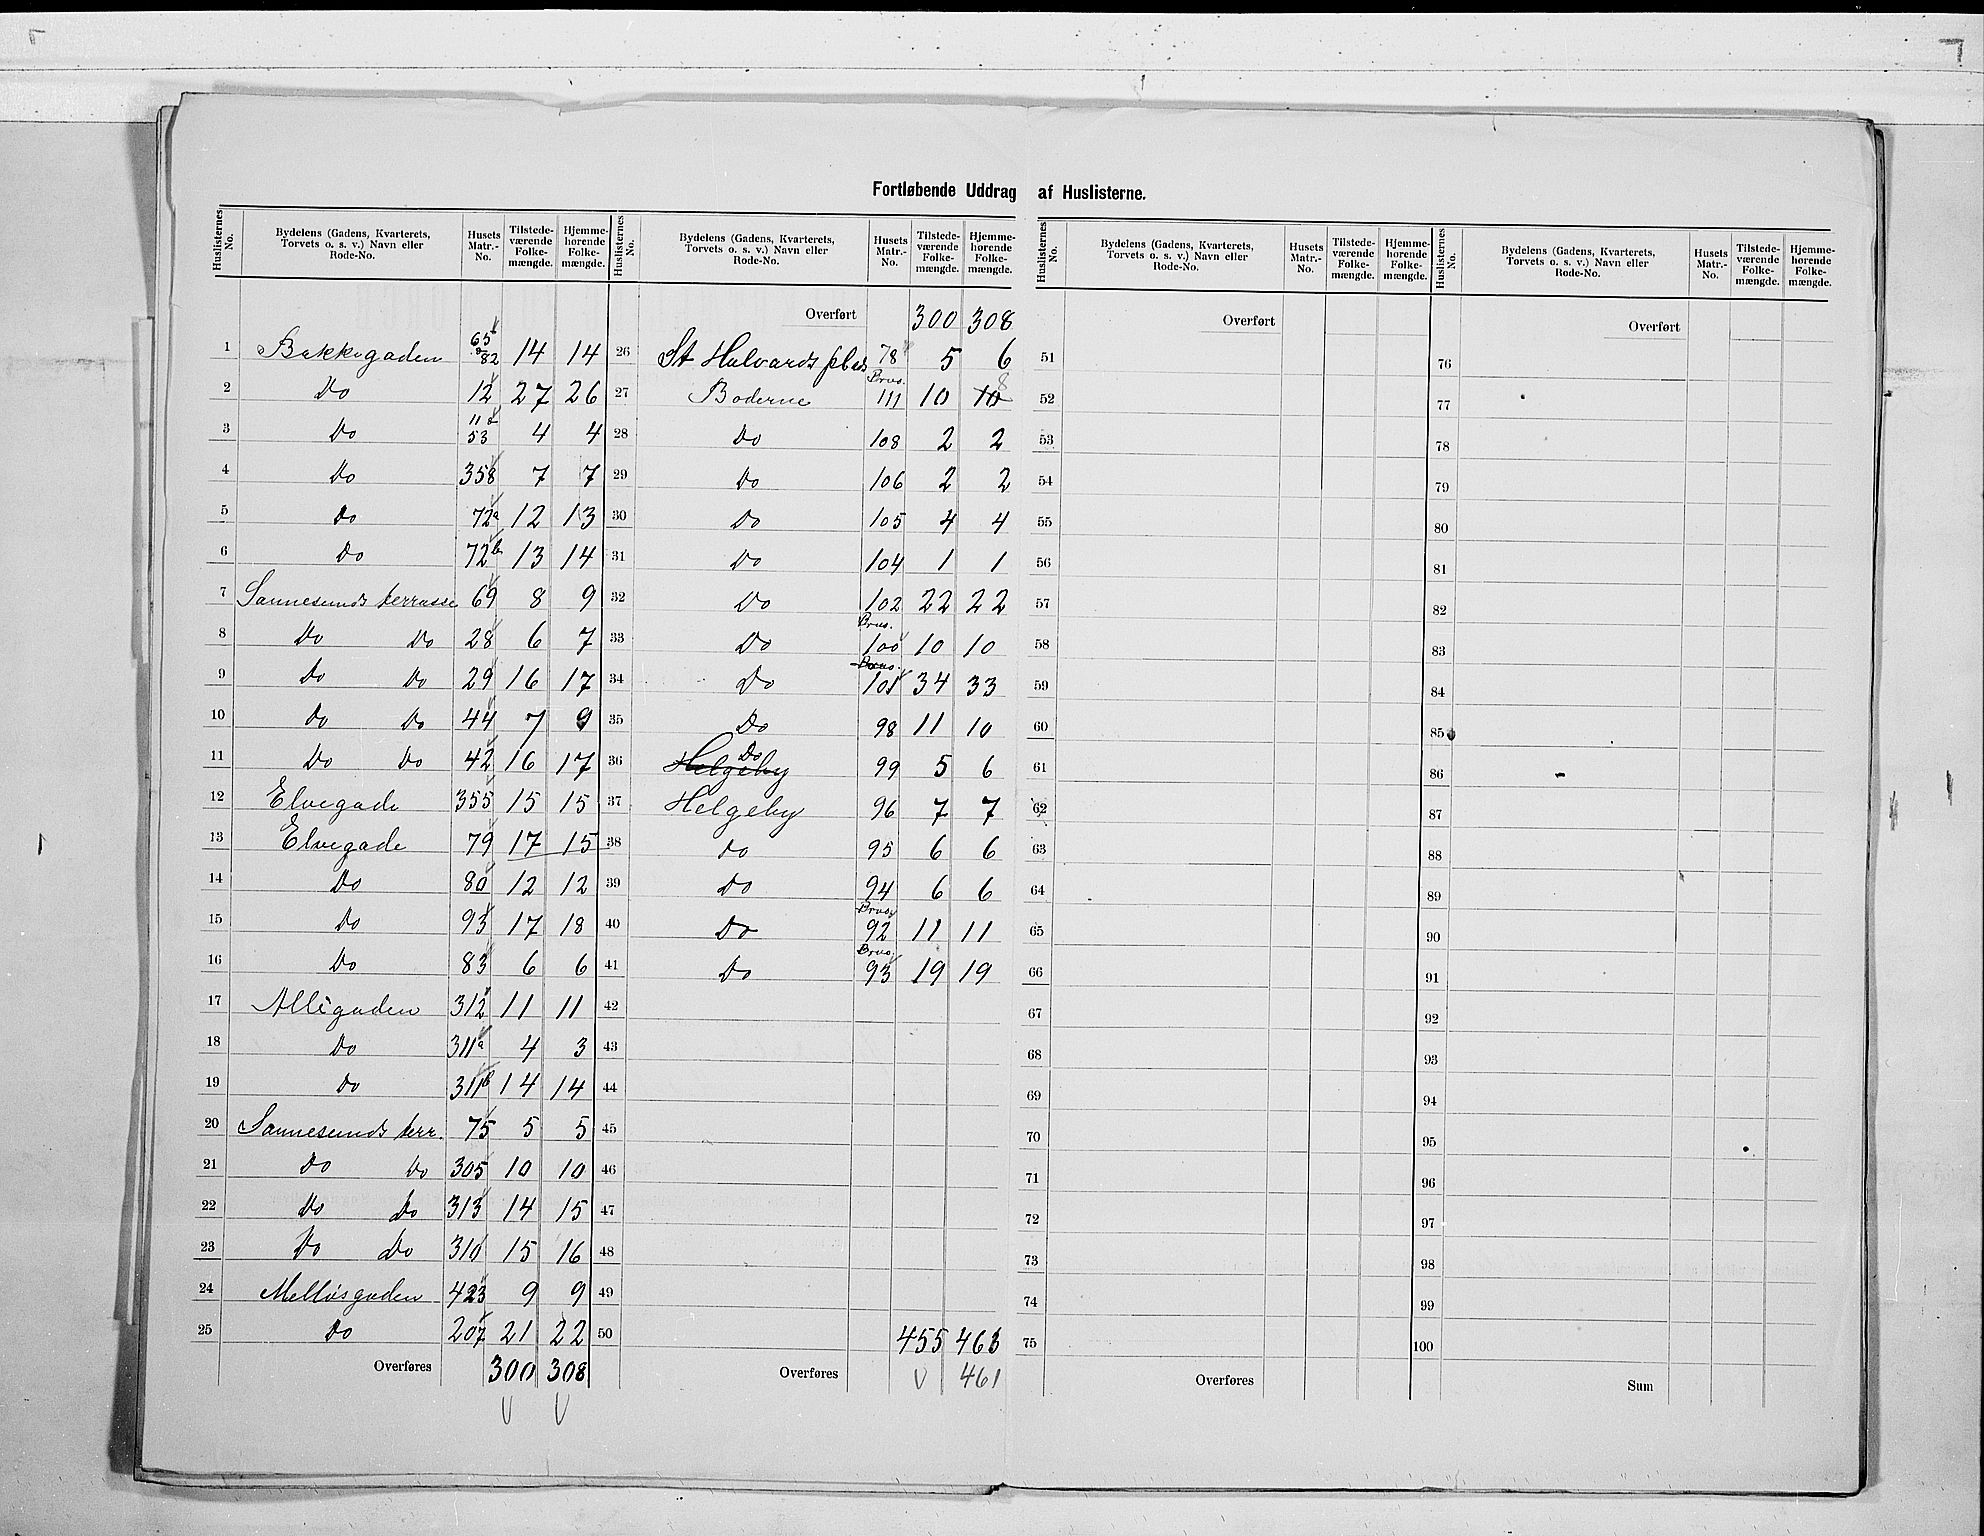 Fortløbende Uddrag af Huslisterne.
Huslisternes No. | Bydelens (Gadens, Kvarterets, Torvets o. s. v.) Navn eller Rode-No. | Husets Matr.-No. | Tilstedeværende Folkemængde. | Hjemmehørende Folkemængde.
1 Bakkegaden 65b 82 14 14
2 Do 12 27 26
3 Do 11d 53 4 4
4 Do 358 7 7
5 Do 72a 12 13
6 Do 72b 13 14
7 Sannesunds terrasse 69 8 9
8 Do Do 28 6 7
9 Do Do 29 16 17
10 Do Do 44 7 9
11 Do Do 42 16 17
12 Elvegade 355 15 15
13 Elvegade 79 17 15
14 Do 80 12 12
15 Do 93 17 18
16 Do 83 6 6
17 Allégaden 312 11 11
18 Do 311a 4 3
19 Do 311b 14 14
20 Sannesunds terr. 75 5 5
21 Do Do 305 10 10
22 Do Do 313 14 15
23 Do Do 310 15 16
24 Melløsgaden 423 9 9
25 Do 207 21 22
Overføres 300 308
Huslisternes No. | Bydelens (Gadens, Kvarterets, Torvets o. s. v.) Navn eller Rode-No. | Husets Matr.-No. | Tilstedeværende Folkemængde. | Hjemmehørende Folkemængde.
Overført 300 308
26 St Halvards plads 78 5 6
27 Boderne 111 10 10 8
28 Do 108 2 2
29 Do 106 2 2
30 Do 105 4 4
31 Do 104 1 1
32 Do 102 22 22
33 Do 100 10 10
34 Do 101 34 33
35 Do 98 11 10
36 Helgeby Do 99 5 6
37 Helgeby 96 7 7
38 Do 95 6 6
39 Do 94 6 6
40 Do 92 11 11
41 Do 93 19 19
42
43
44
45
46
47
48
49
50 455 463
Overføres 461
Huslisternes No. | Bydelens (Gadens, Kvarterets, Torvets o. s. v.) Navn eller Rode-No. | Husets Matr.-No. | Tilstedeværende Folkemængde. | Hjemmehørende Folkemængde.
Overført
51
52
53
54
55
56
57
58
59
60
61
62
63
64
65
66
67
68
69
70
71
72
73
74
75
Overføres
Huslisternes No. | Bydelens (Gadens, Kvarterets, Torvets o. s. v.) Navn eller Rode-No. | Husets Matr.-No. | Tilstedeværende Folkemængde. | Hjemmehørende Folkemængde.
Overført
76
77
78
79
80
81
82
83
84
85
86
87
88
89
90
91
92
93
94
95
96
97
98
99
100
Sum